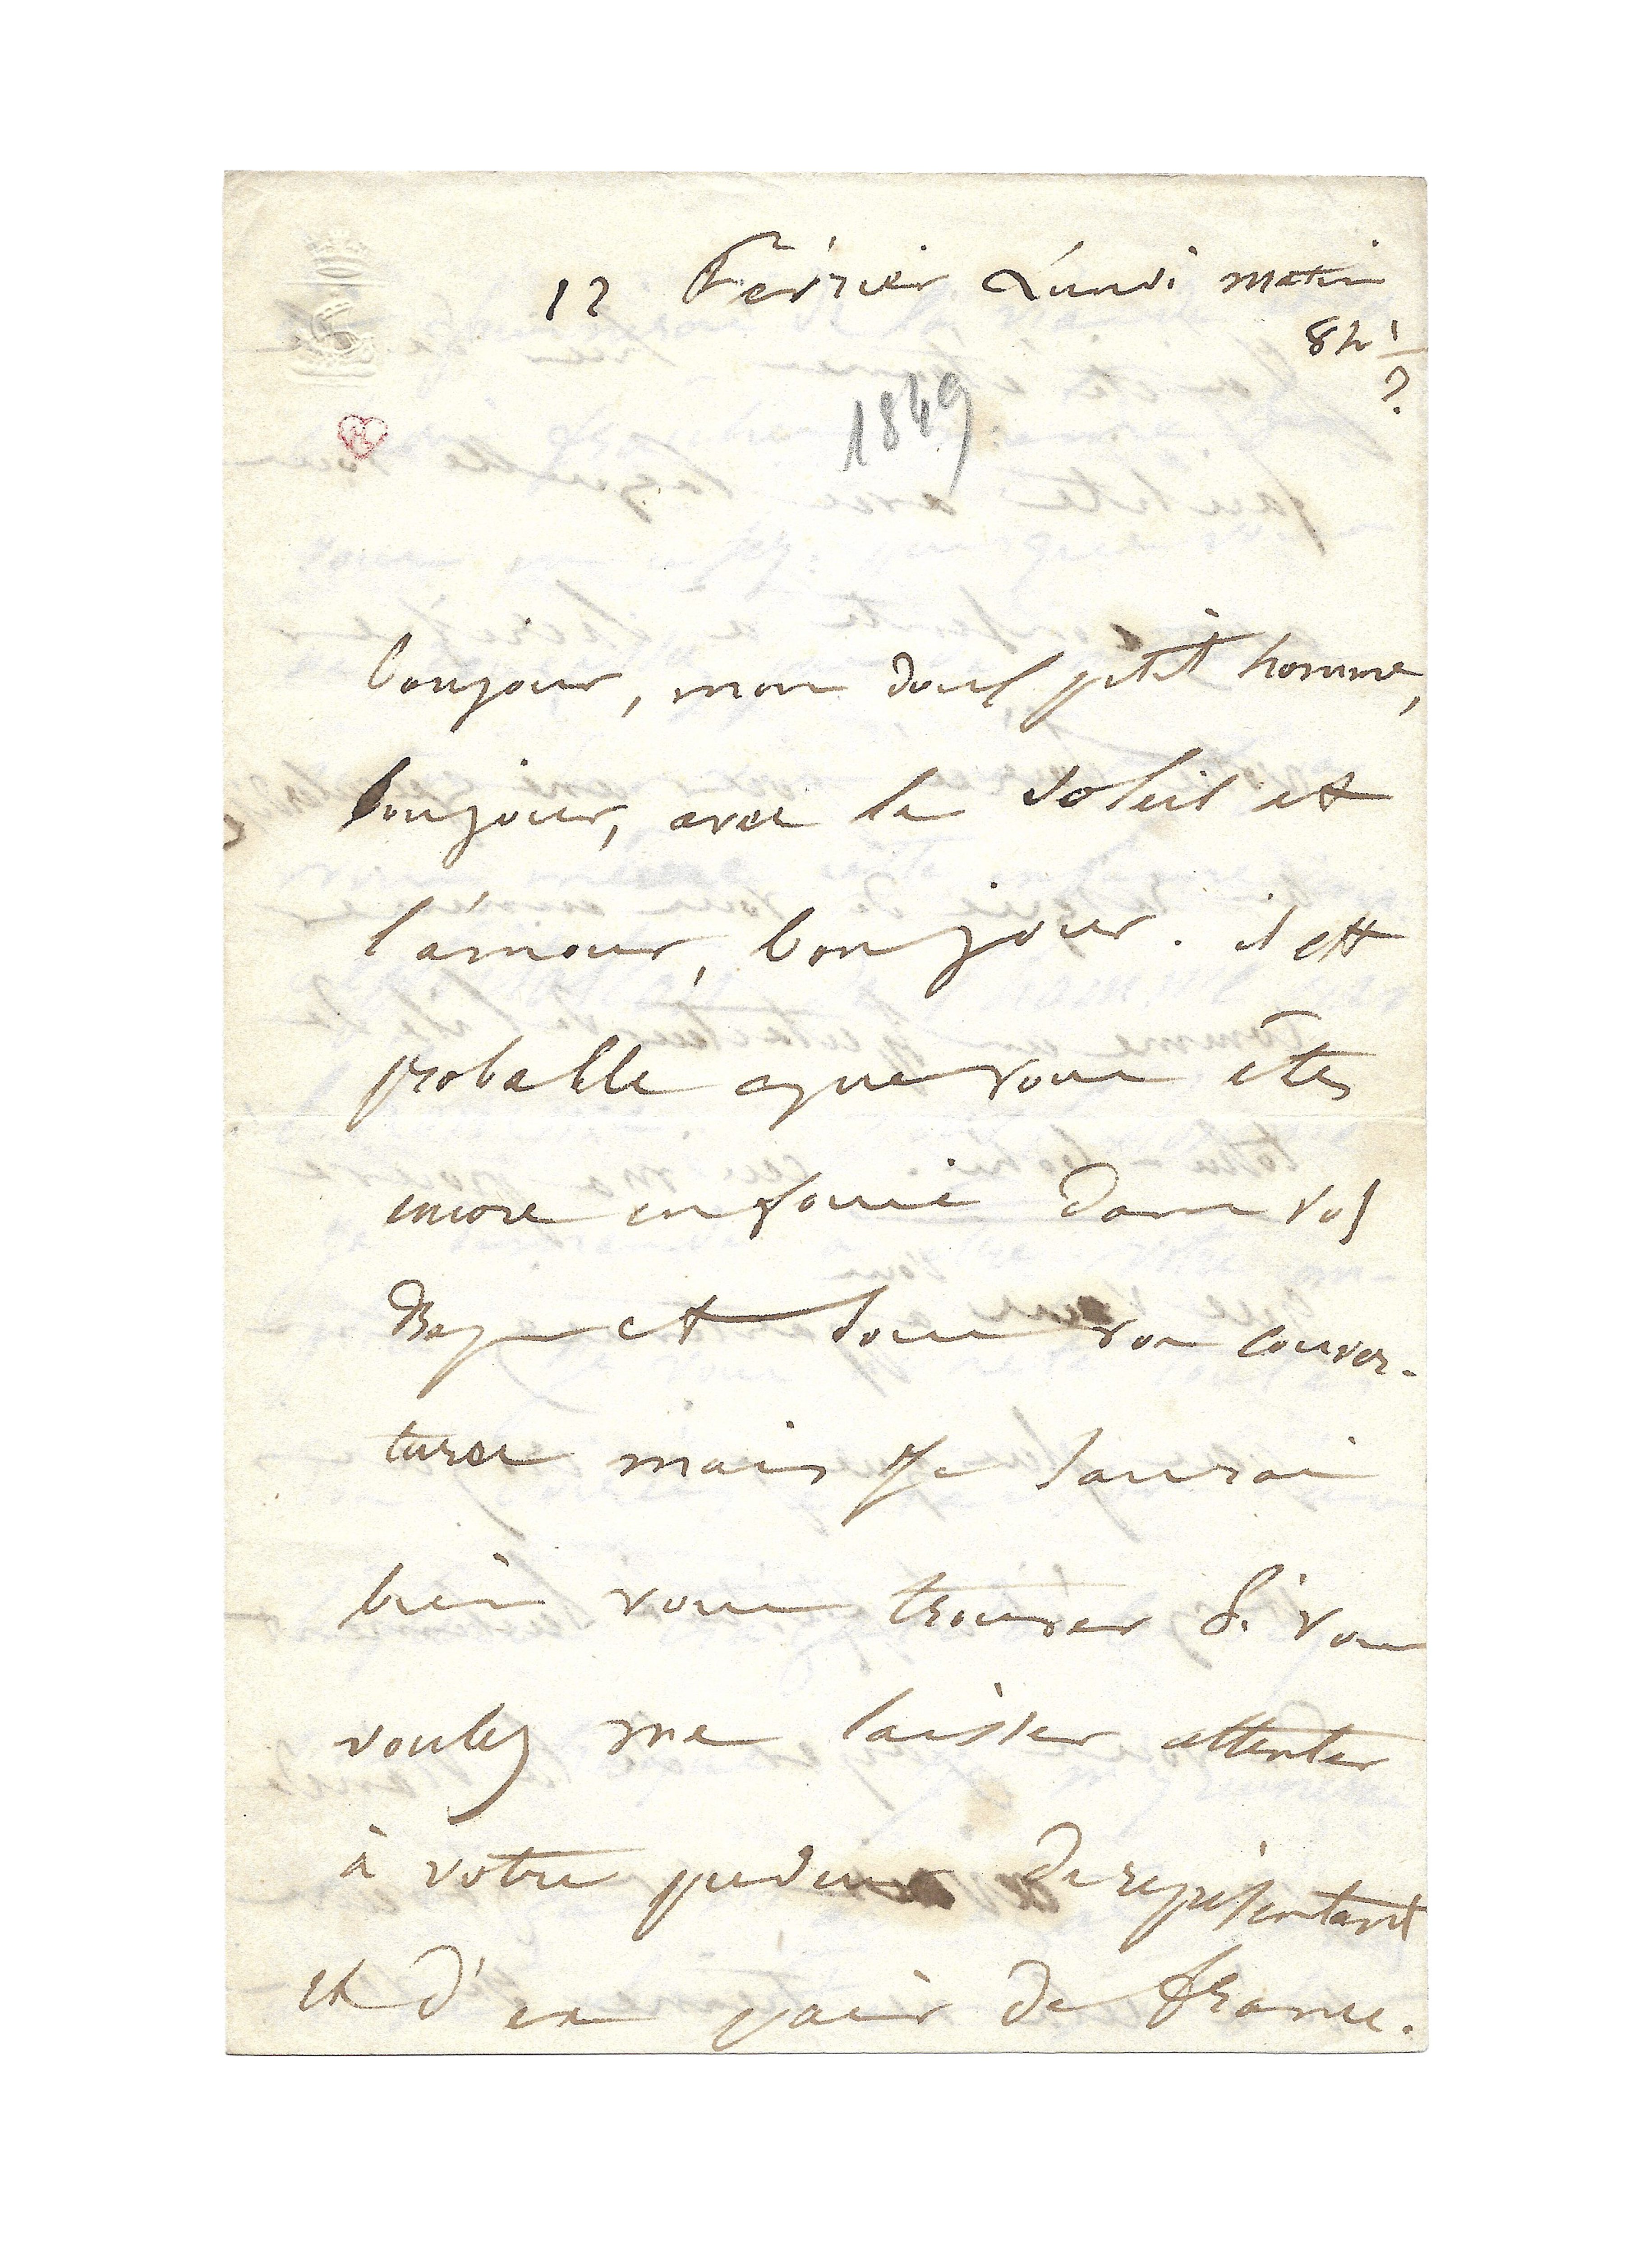 12 Février Lundi matin
8h ½
1849
bonjour, mon doux petit homme,
bonjour, avec le soleil et
l'amour, bonjour. il est
probable que vous êtes
encore enfoui dans vos
Draps et sous vos couver-
tures mais je saurai
bien vous trouver si vous
voulez me laisser attenter
à votre pudeur de représentant
et d'ex pair de france.